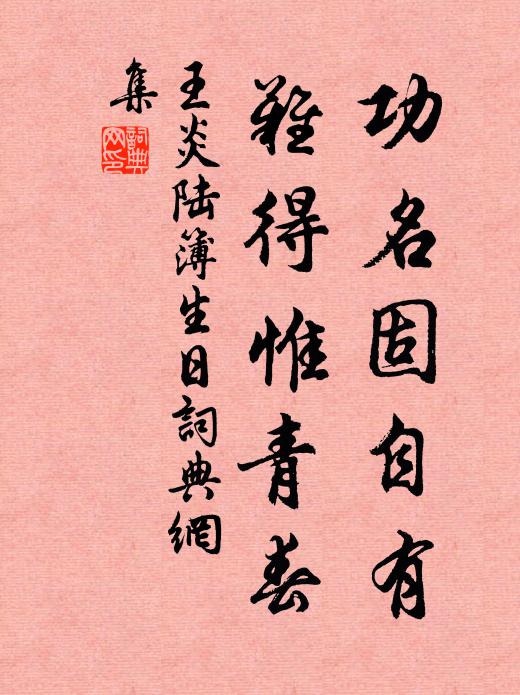 功名固自有
難得惟青春
王炎陆簿生日詞典網
集
詞典
网印